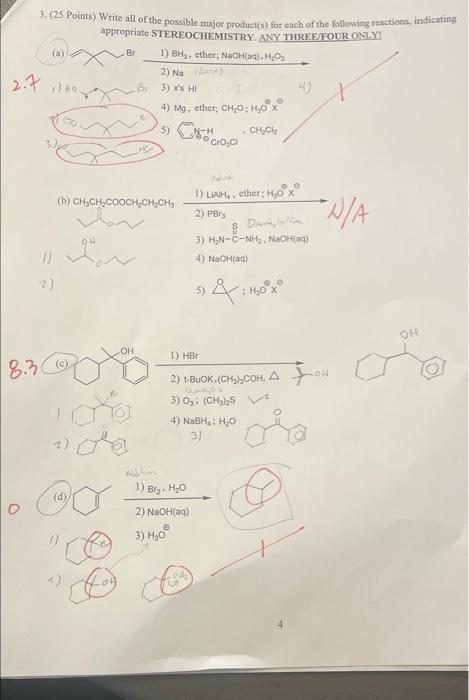 3. (25 Points) Write all of the possible major product(s) for each of the following reactions, indicating
appropriate STEREOCHEMISTRY. ANY THREE/FOUR ONLY!
(a) Br 1) BH₃, ether; NaOH(aq), H₂O₂
2) Na
2.7 1) HO Br 3) x's HI 4)
4) Mg, ether; CH₂O; H₃O⊕X⊖
5) N-H⊕ ⊖CrO₃Cl , CH₂Cl₂
3)
(b) CH₃CH₂COOCH₂CH₂CH₃ 1) LiAlH₄, ether; H₃O⊕X⊖
2) PBr₃ N/A
O O
S
3) H₂N-C-NH₂, NaOH(aq)
OH
1) O 4) NaOH(aq)
2) O
5) ; H₃O⊕X⊖
OH
8.3 (c) OH 1) HBr
2) t-BuOK, (CH₃)₃COH, Δ OH
Br 3) O₃; (CH₃)₂S
1 4) NaBH₄; H₂O O
2) 3)
Addition
0 (d) 1) Br₂, H₂O
2) NaOH(aq)
1) Br 3) H₃O⊕
2) OH
4